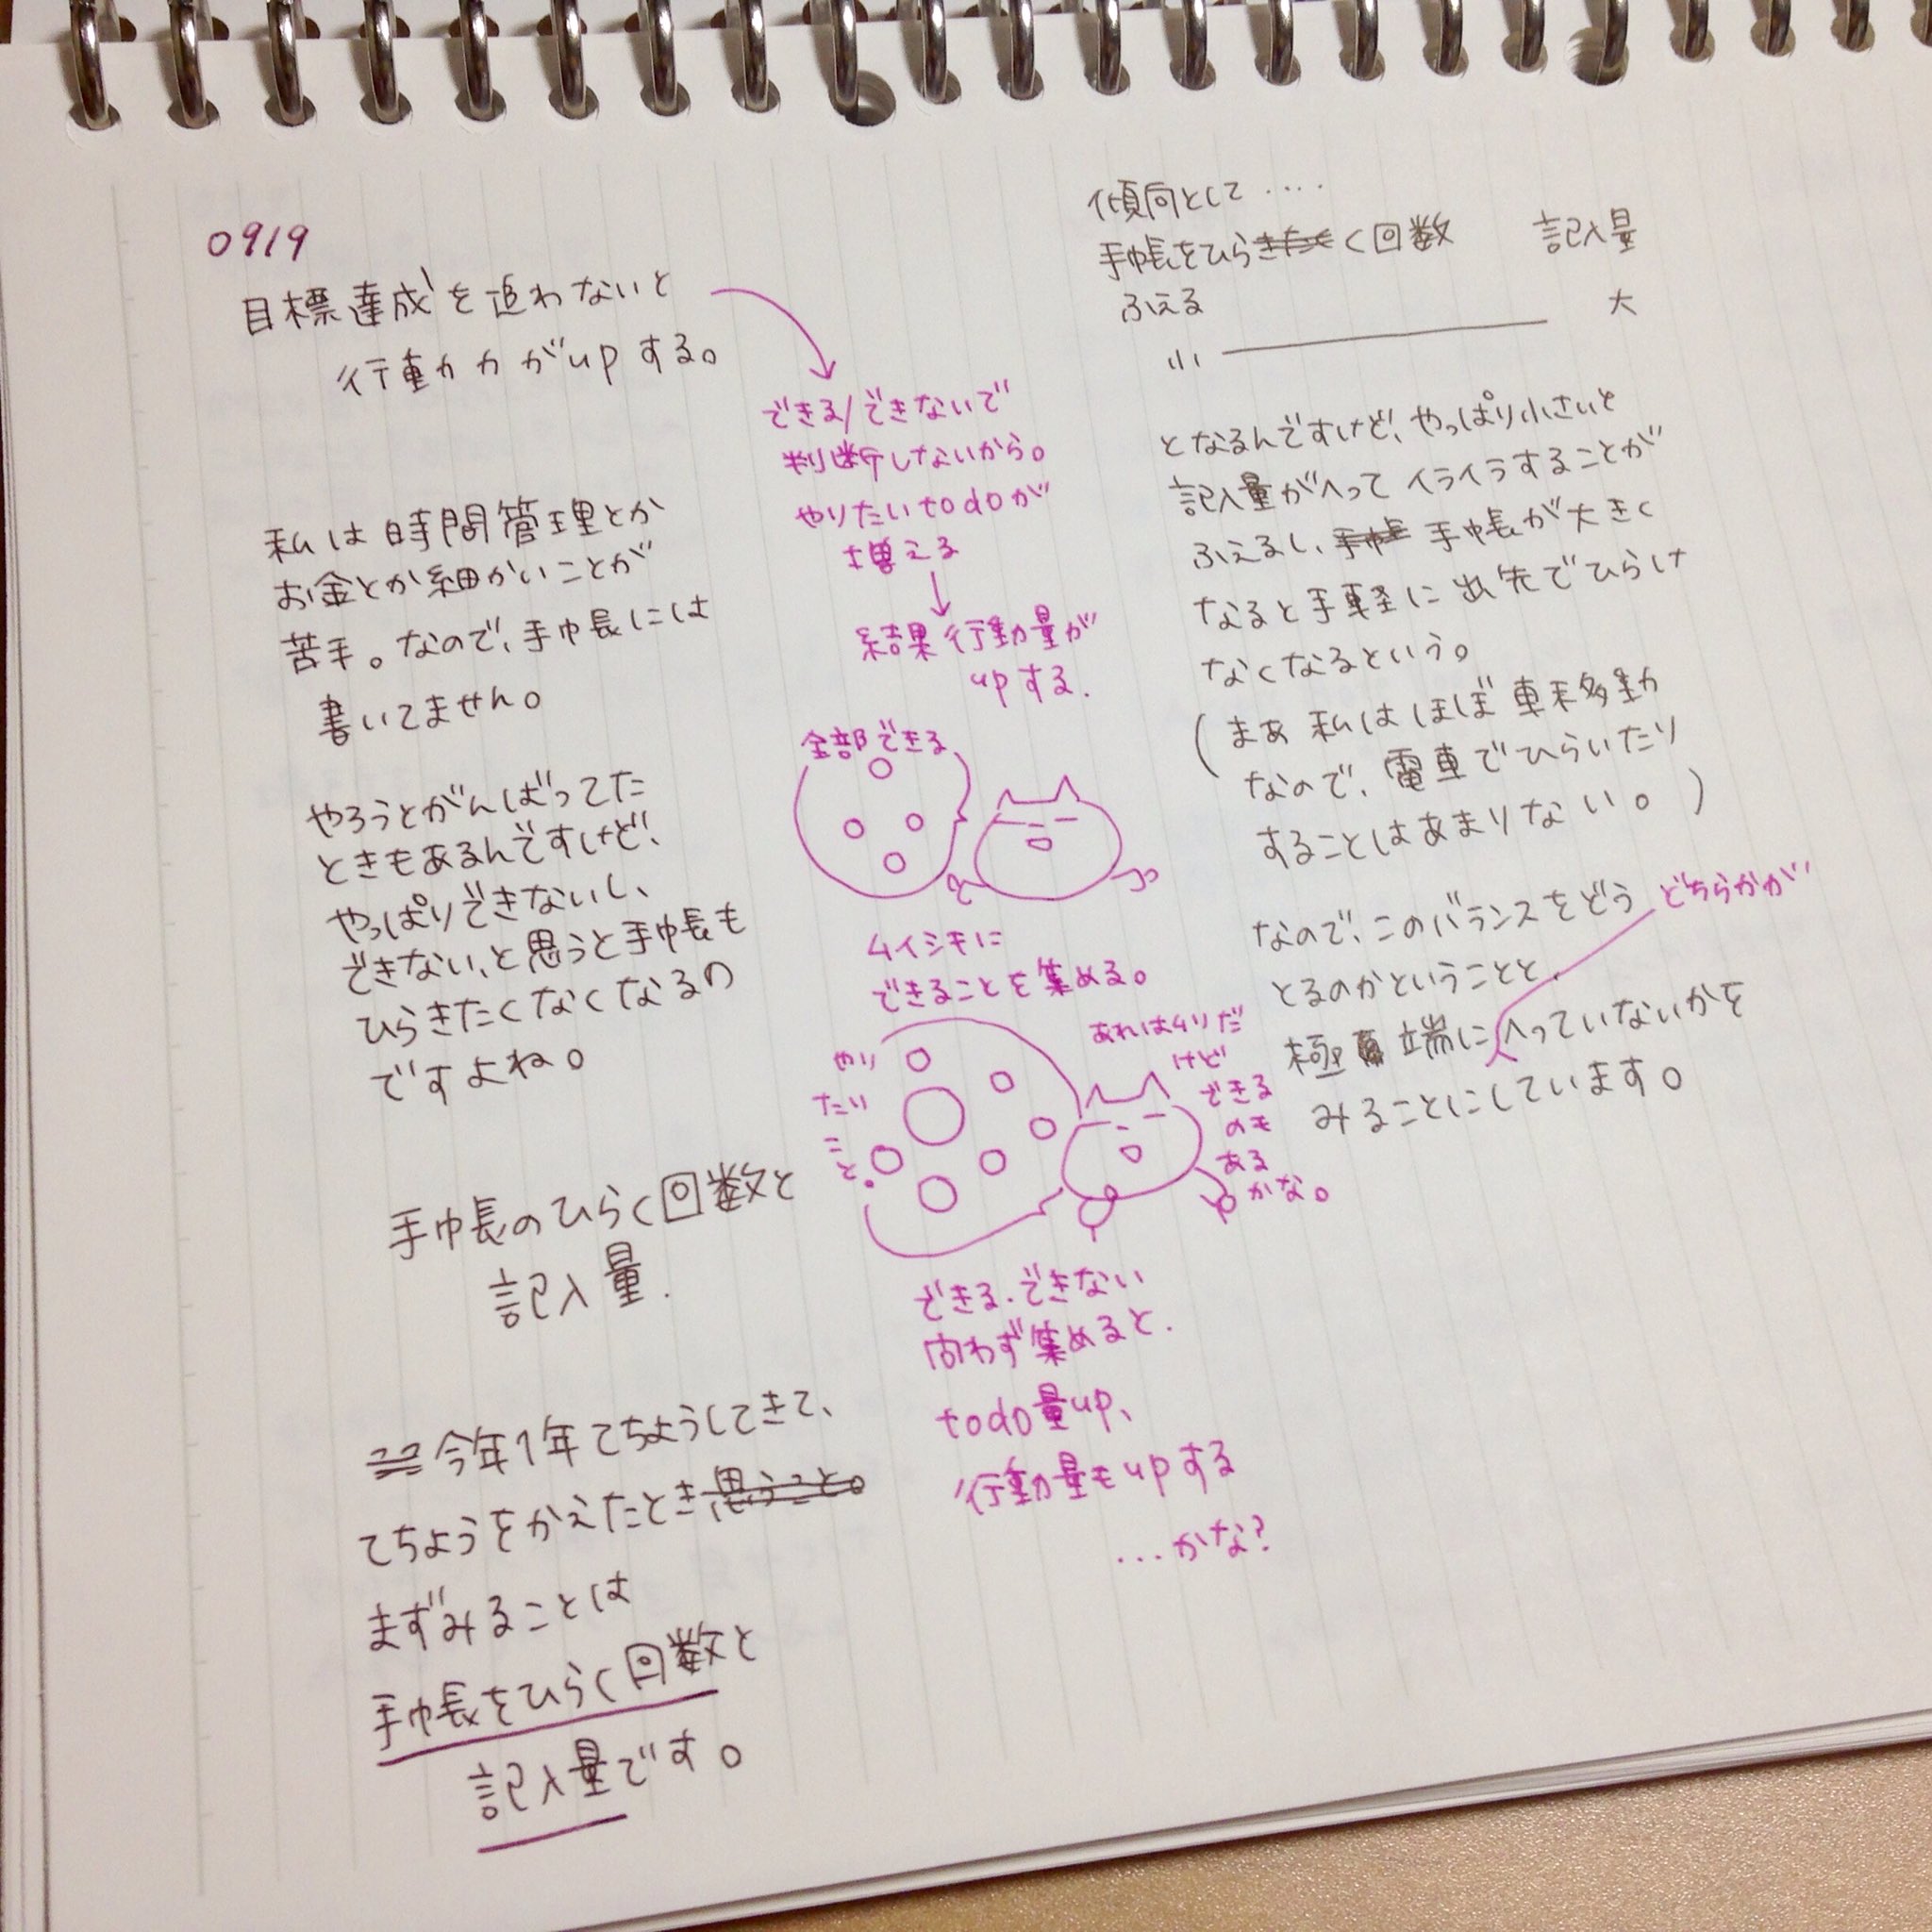 0919
目標達成を追わないと
行動力がupする。
私は時間管理とか
お金とか細かいことが
苦手。なので、手帳には
書いてません。
やろうとがんばってた
ときもあるんですけど、
やっぱりできないし、
できない、と思うと手帳も
ひらきたくなくなるの
ですよね。
手帳のひらく回数と
記入量.
今年1年てちょうしてきて、
てちょうをかえたとき思うこと。
まずみることは
手帳をひらく回数と
記入量です。
できる/できないで
判断しないから。
やりたいtodoが
増える
結果行動量が
upする.
全部できる
ムイシキに
できることを集める。
やり
たい
こ
と。
あれはムリだ
けど
できる
のも
ある
かな。
できる.できない
問わず集めると.
todo量up、
行動量もupする
...かな?
傾向として....
手帳をひらく回数 記入量
ふえる 大
小
となるんですけど、やっぱり小さいと
記入量がへってイライラすることが
ふえるし、手帳 手帳が大きく
なると手軽に出先でひらけ
なくなるという。
(まあ私はほぼ車移動
なので、電車でひらいたり
することはあまりない。)
なので、このバランスをどう
とるのかということと、
どちらかが
極端にへっていないかを
みることにしています。